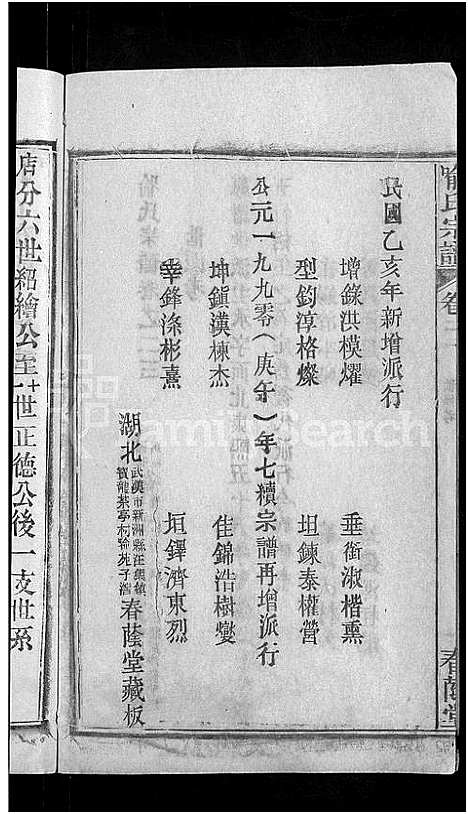 喻氏宗譜 卷二
春蔭堂
民國乙亥年新增派行
增錄洪模燿 垂銜淑楷熏
型鈞淳格燦 坦鍊泰權營
公元一九九零(庚午)年七續宗譜再增派行
坤鎮漢棟杰 佳錦浩樹燮
幸鋒滌彬熹 垣鐸濟東烈
湖北武漢市新洲縣汪集鎮
春蔭堂藏板
店分六世紹繪公至十世正德公後一支世系
FamilySearch